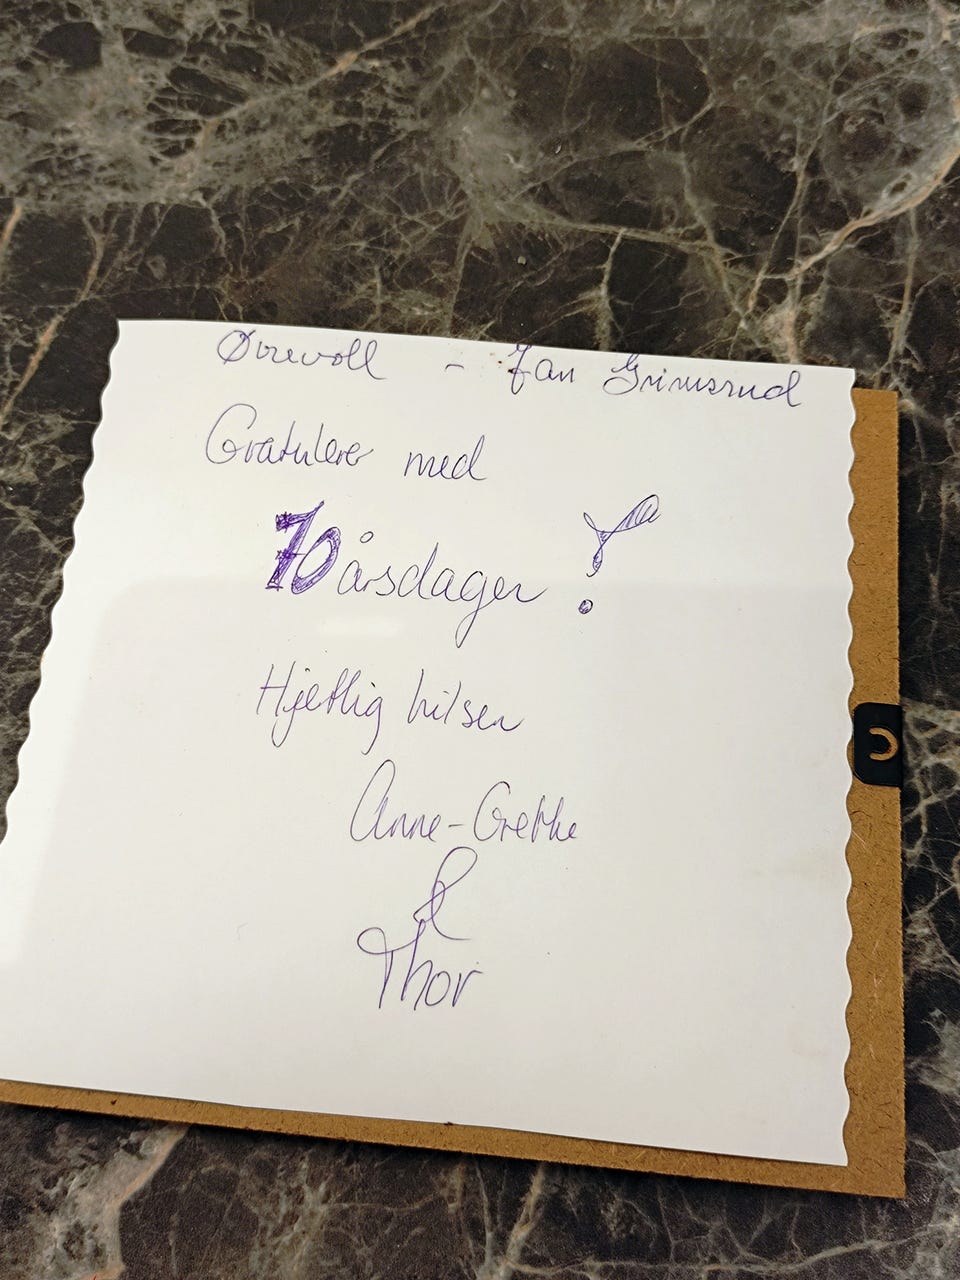 Øvrevoll - Jan Grimsrud
Gratulerer med
70 årsdagen !
Hjertlig hilsen
Anne-Grethe
&
Thor